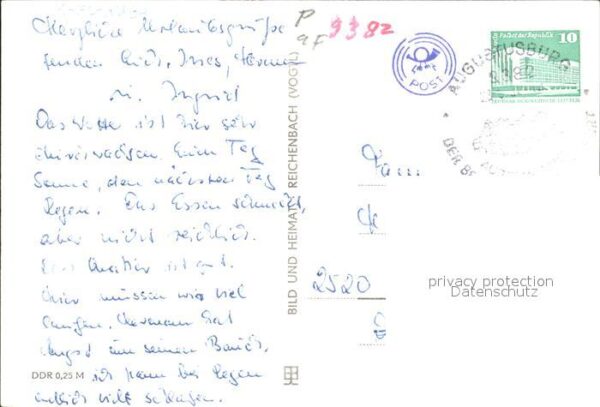 Herzliche Urlaubsgrüße
senden Euch, Ines, Hermann
u. Ingrid
Das Wetter ist hier sehr
durchwachsen. Einen Tag
Sonne, den nächsten Tag
Regen. Das Essen schmeckt,
aber nicht reichlich.
Das Quartier ist gut.
Hier müssen wir viel
laufen. Hermann hat
Angst um seinen Bauch.
ich kann bei Regen
endlich viel schlafen.
DDR 0,25 M
BILD UND HEIMAT REICHENBACH (VOGTL)
P
9382
POST
Palast der Republik 10
DEUTSCHE DEMOKRATISCHE REPUBLIK
AUGUSTUSBURG
DER
Fam.
2520
privacy protection
Datenschutz